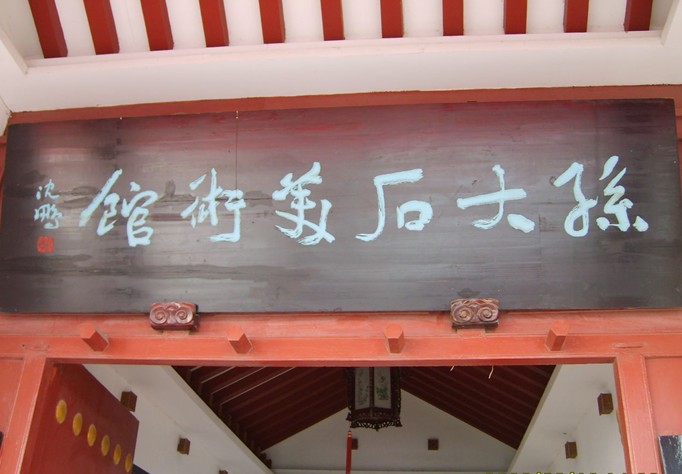 孫大石美術館
沈鹏